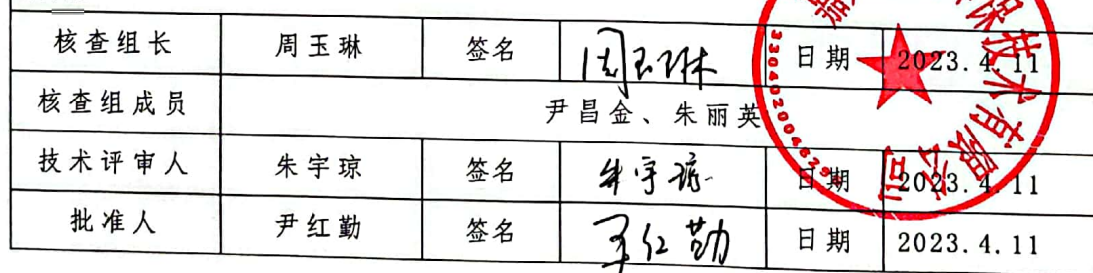 核查组长 周玉琳 签名 周玉琳 日期 2023.4.11
核查组成员 尹昌金、朱丽英
技术评审人 朱宇琼 签名 朱宇琼 日期 2023.4.11
批准人 尹红勤 签名 尹红勤 日期 2023.4.11
保技术有限公司